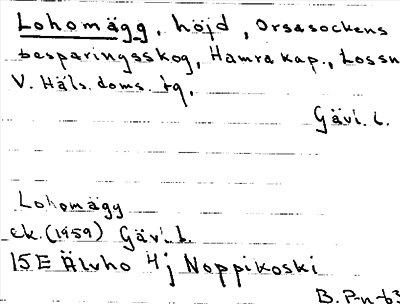 Lohomägg, höjd, Orsasockens
besparingsskog, Hamra kap., Lossn
V. Häls. doms. tg.
Gävl. l.
Lohomägg
ek. (1959) Gävl. l.
15E Älvho 4j Noppikoski
B. P-n-b